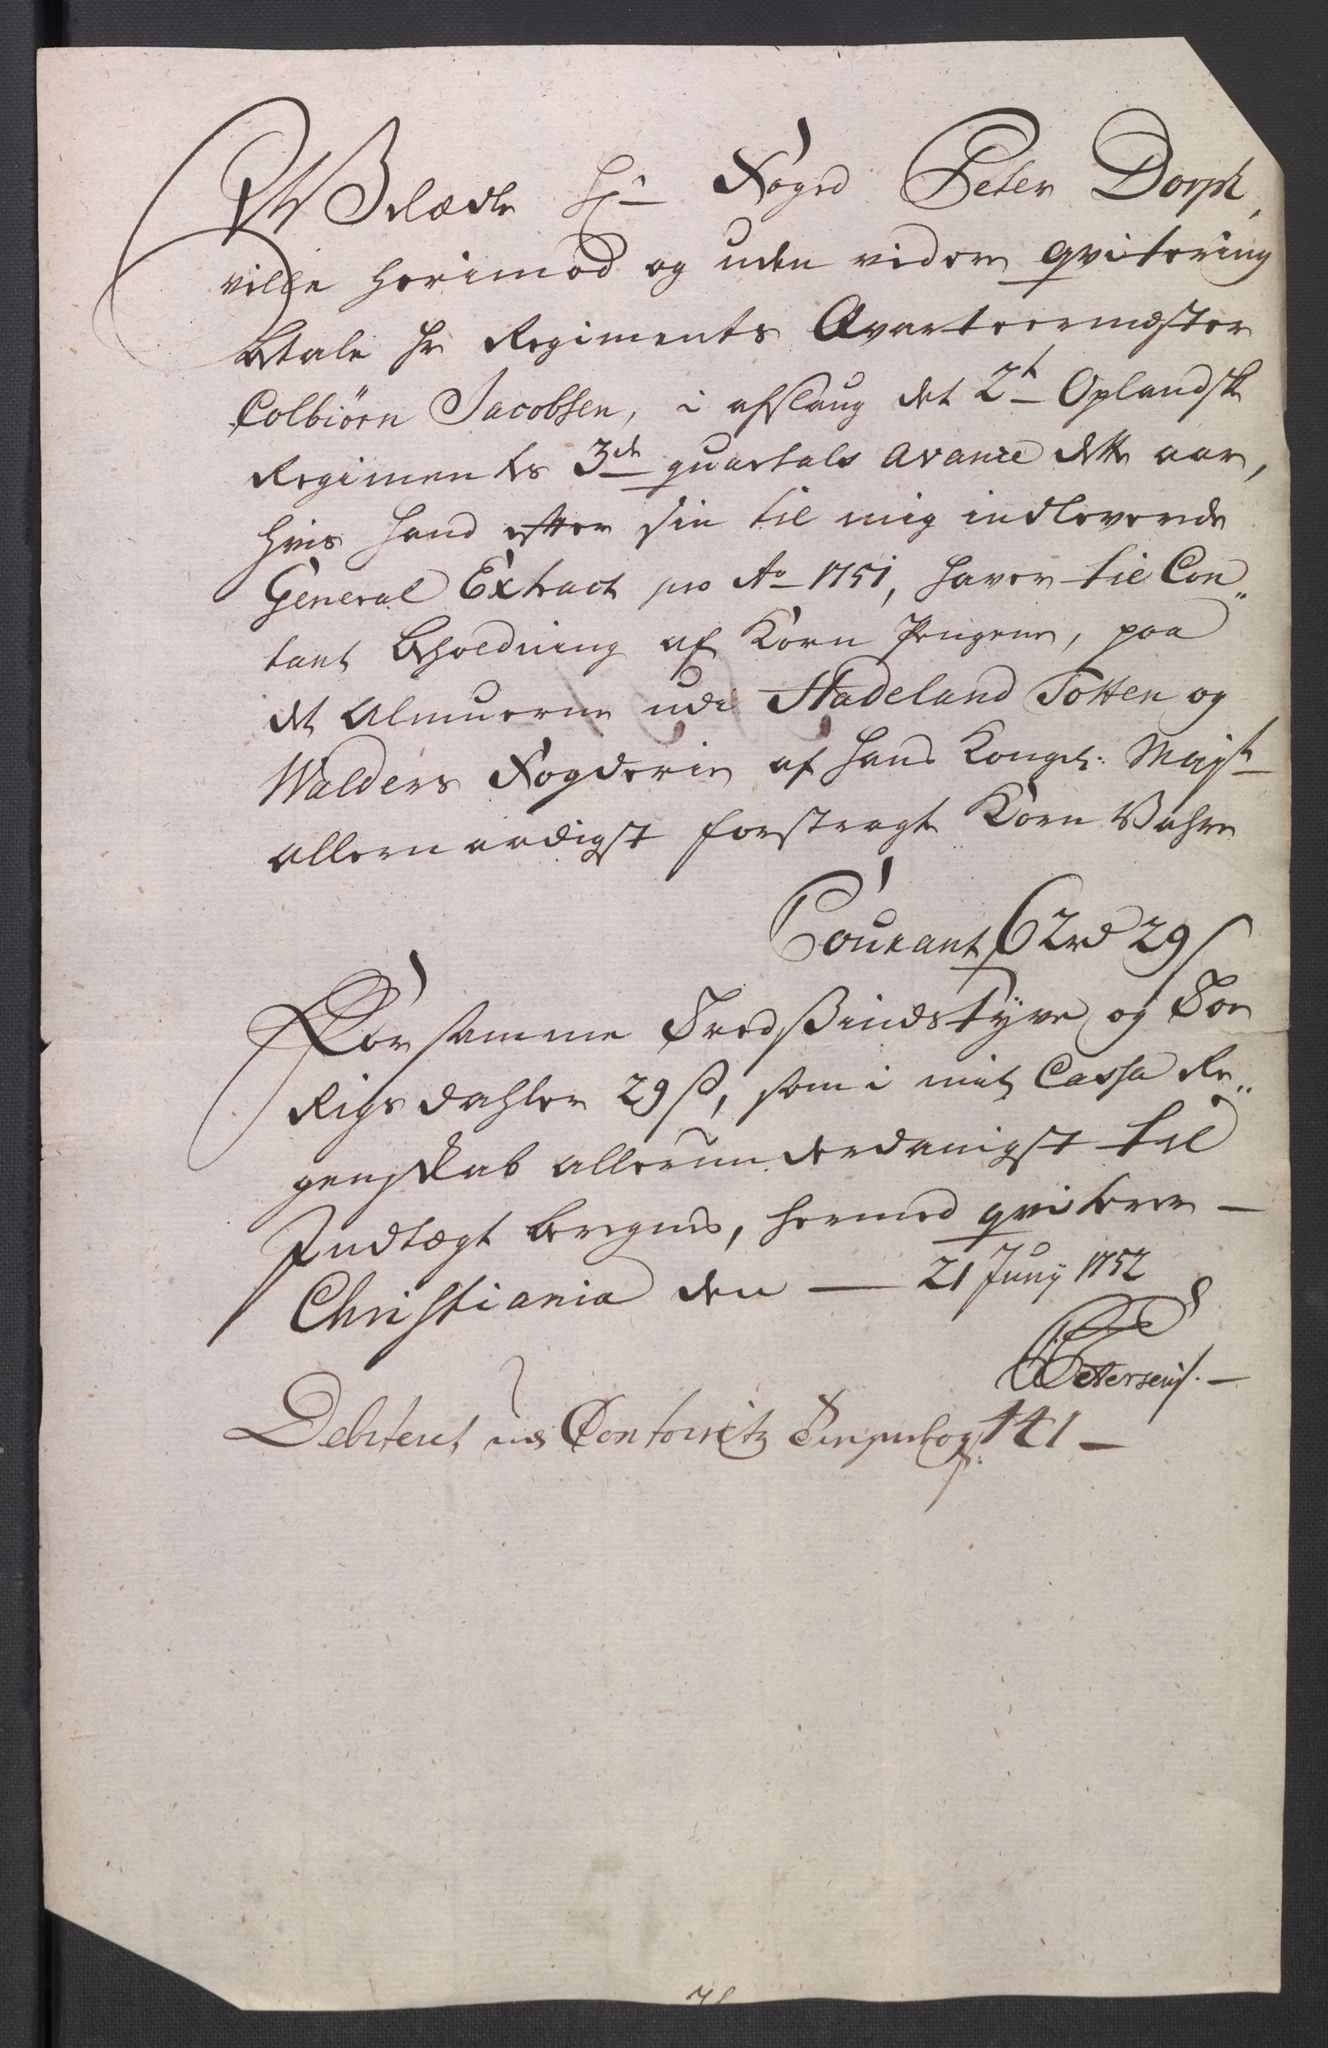 Velædle Hr. Foged Peter Dorph,
ville herimod og uden videre qvitering
betale hr Regiments Qvarteermester
Colbiörn Jacobsen, i afslaug det 2t Oplandsk
Regiments 3de quartals Avance dette aar,
hvis hand efter sin til mig indleverede
General Extract pro Ao 1751, haver til Con„
tant Beholdning af Korn Pengene, paa
det Almuerne udi Hadeland Totten og
Walders Fogderie af Hans Kongel: Mayst
allernaadigst forstragte Korn Vahre
Courant 62 rd 29 s
For samme Tredsindstyve og Toe
Rigsdahler 29 s, som i mit Cassa Re„
genskab allerunderdanigst til
Indtægt beregnes, hermed qviterer —
Christiania den — 21 Juny 1752
Petersen. —
Debiteret ud Contoirets Pengebog: 141 —